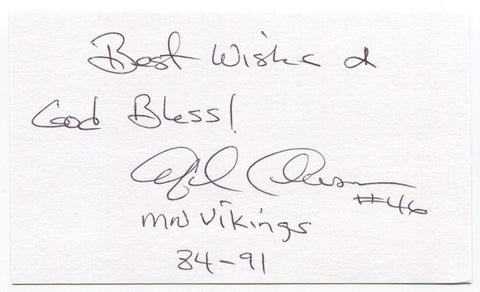 Best Wishes &
God Bless!
Alfred Anderson
#46
MN Vikings
84-91